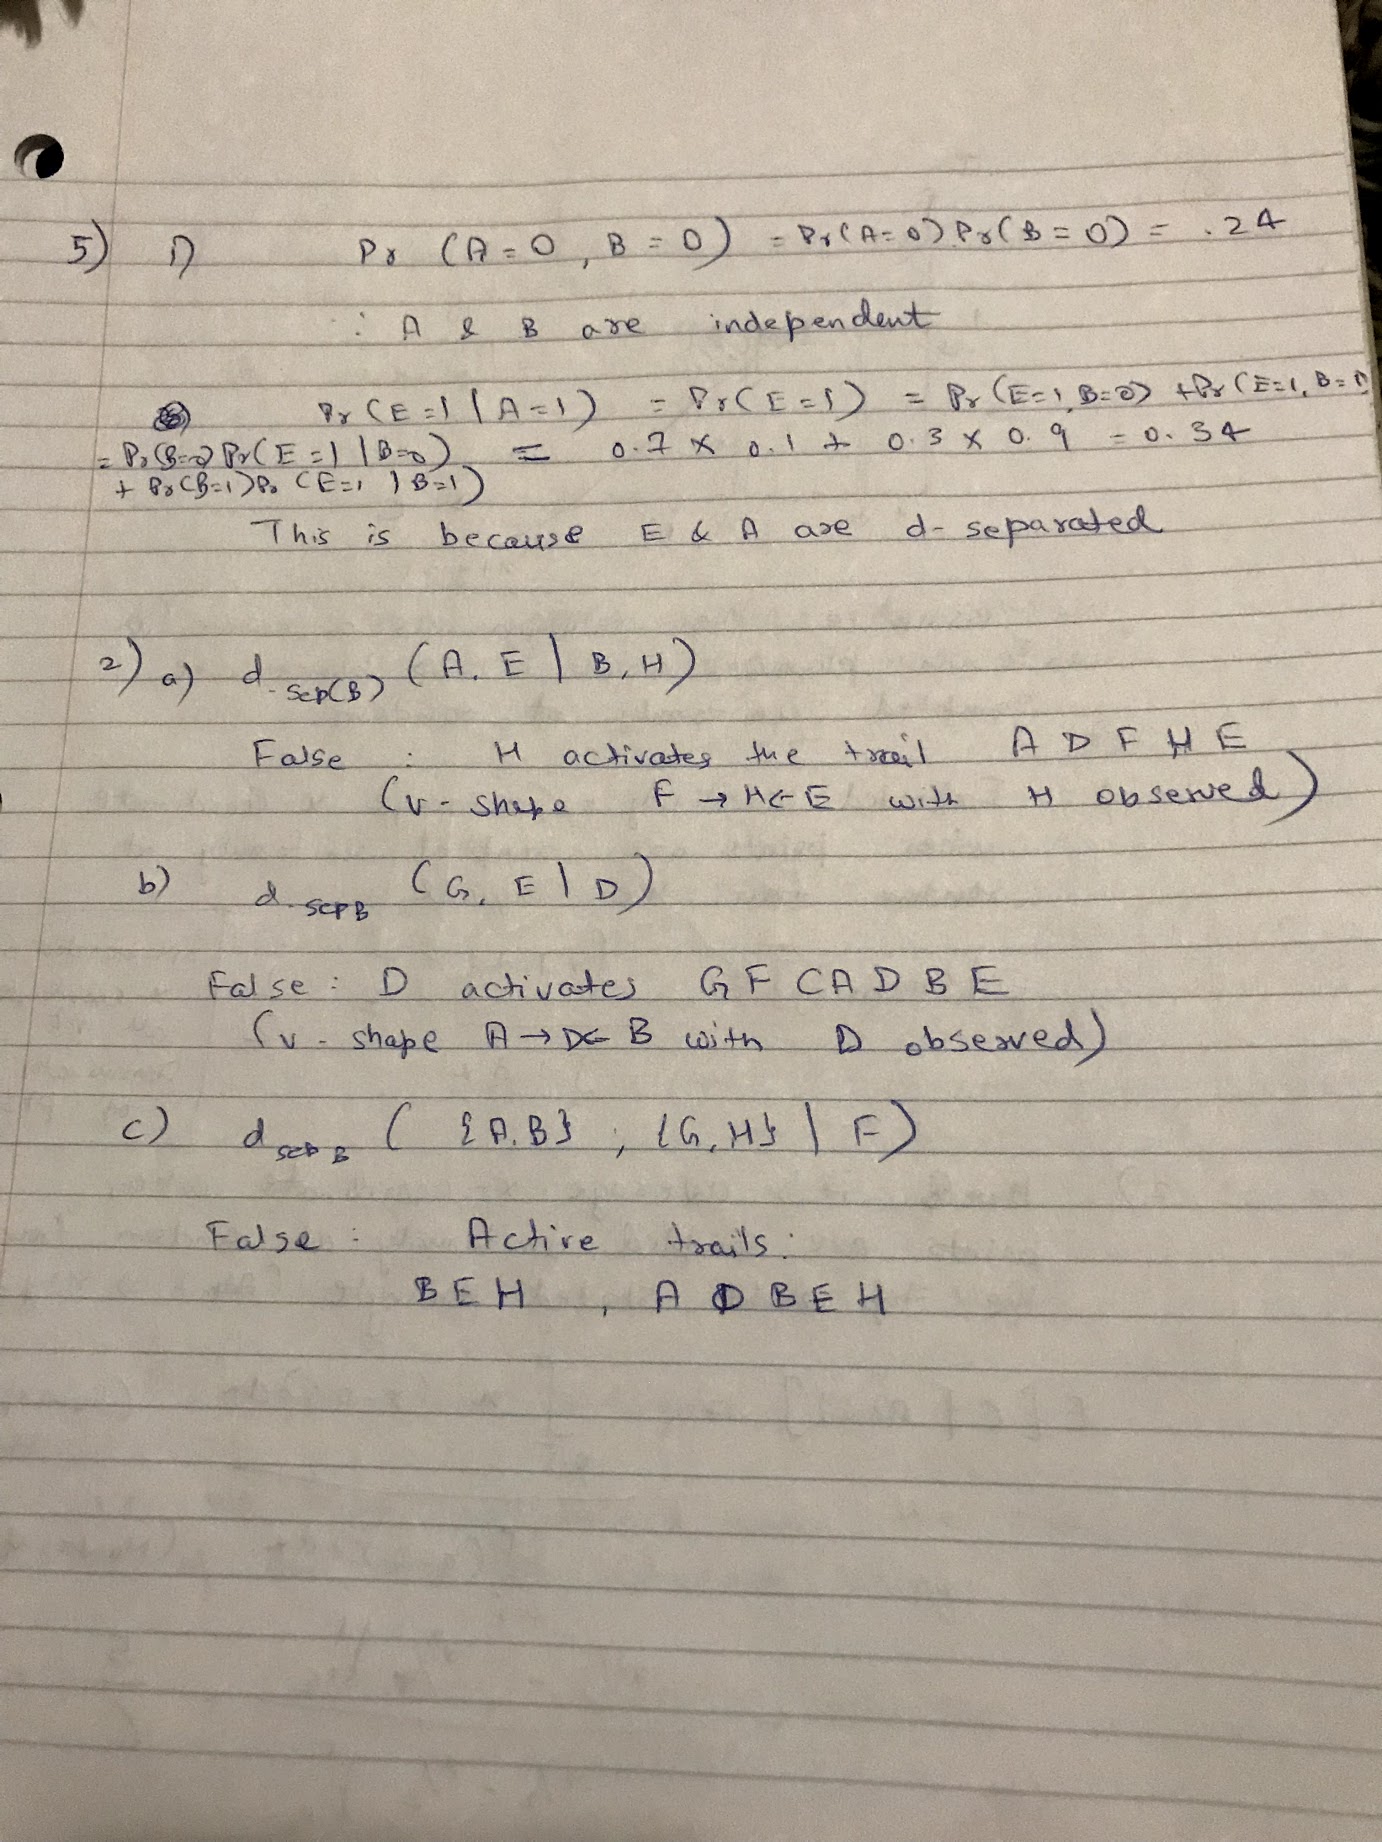 5) 1) Pr (A=0, B=0) = Pr(A=0) Pr(B=0) = .24
∴ A & B are independent
Pr(E=1 | A=1) = Pr(E=1) = Pr(E=1, B=0) + Pr(E=1, B=1)
= Pr(B=0) Pr(E=1 | B=0) = 0.7 x 0.1 + 0.3 x 0.9 = 0.34
+ Pr(B=1) Pr(E=1 | B=1)
This is because E & A are d-separated
2) a) d-sep(B) (A, E | B, H)
False : H activates the trail A D F H E
(v-shape F → H ← E with H observed)
b) d-sepB (G, E | D)
False : D activates G F C A D B E
(v-shape A → D ← B with D observed)
c) dsepB ( {A,B} , {G,H} | F)
False : Active trails:
B E H , A D B E H